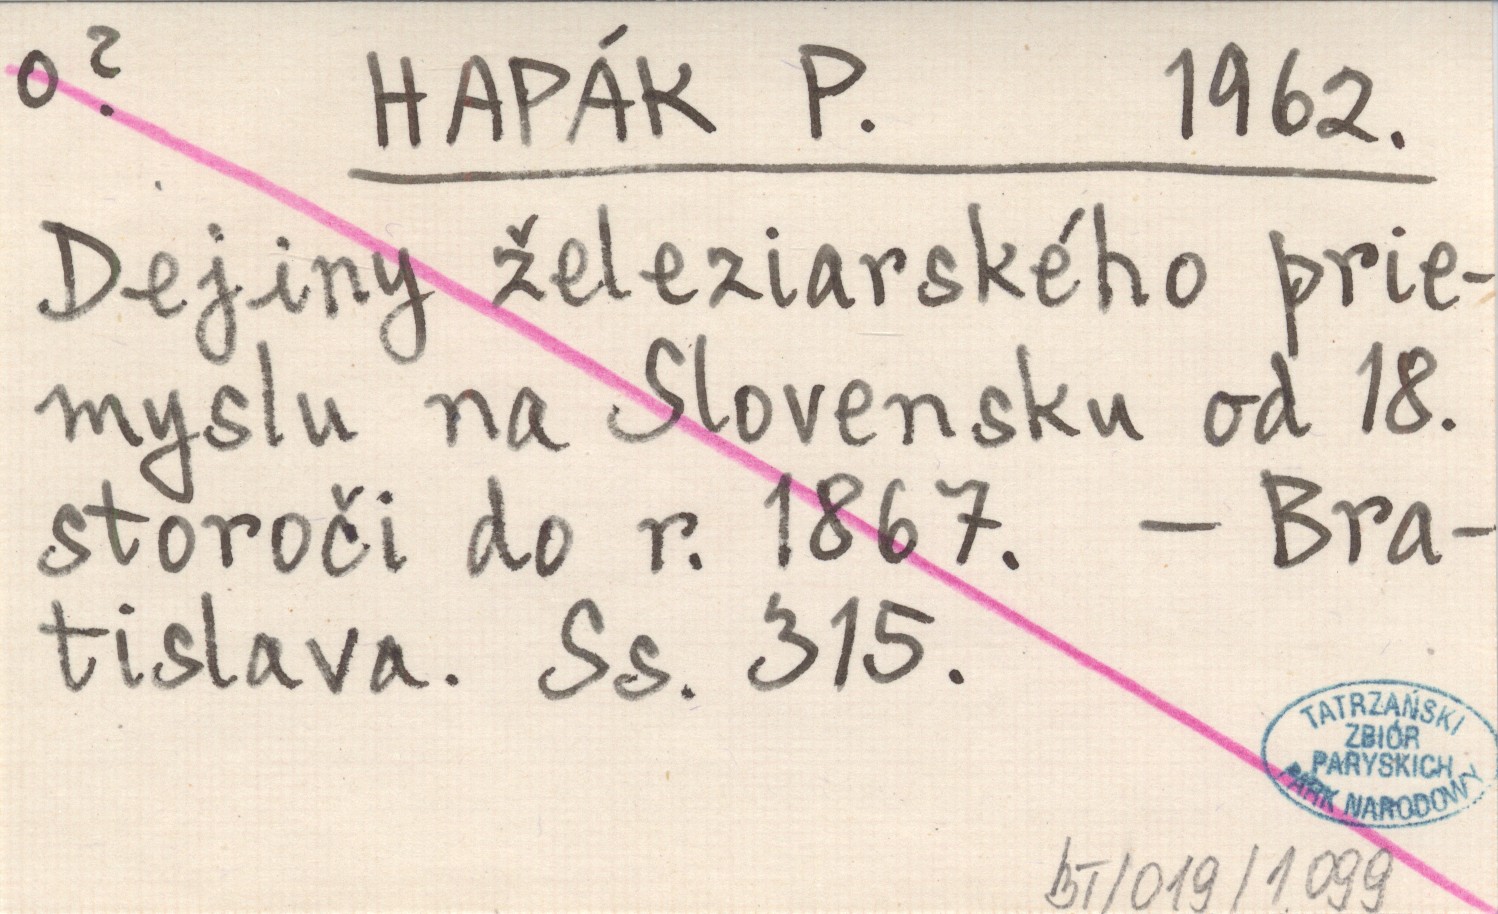 o ?
HAPÁK P. 1962.
Dejiny železiarského prie-
myslu na Slovensku od 18.
storoči do r. 1867. — Bra-
tislava. Ss. 315.
TATRZAŃSKI
ZBIÓR
PARYSKICH
PARK NARODOWY
BT/019/1099